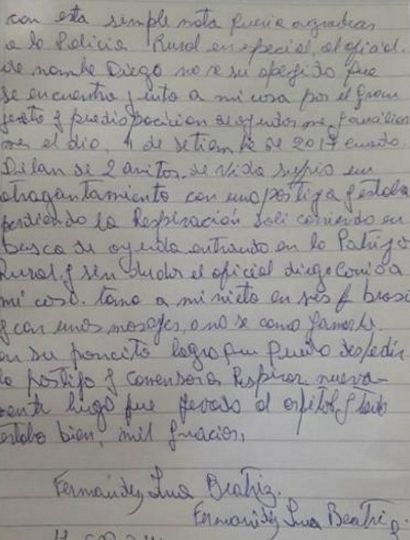 con esta simple nota queria agradecer
a la Policia Rural en especial, al oficial
de nombre Diego no se su apegido que
se encuentra junto a mi casa por el gran
gesto y predisposicion de ayudarme y auxiliar
me el dia, 4 de setiembre de 2017 cuando
Dilan de 2 anitos de vida sufrio un
atragantamiento con una postiga y estaba
perdiendo la Respiración sali corriendo en
busca de ayuda entrando en la Patruya
Rural y sin dudar el oficial diego corrio a
mi casa. tomo a mi nieto en sus brasos
y con unos masages, o no se como yamarle
en su pancito logro que pueda despedir
la postiga y comensar a Respirar nueva-
mente luego fue yevado al ospital y todo
estaba bien, mil gracias,
Fernandez Lina Beatriz.
Fernandez Lina Beatriz